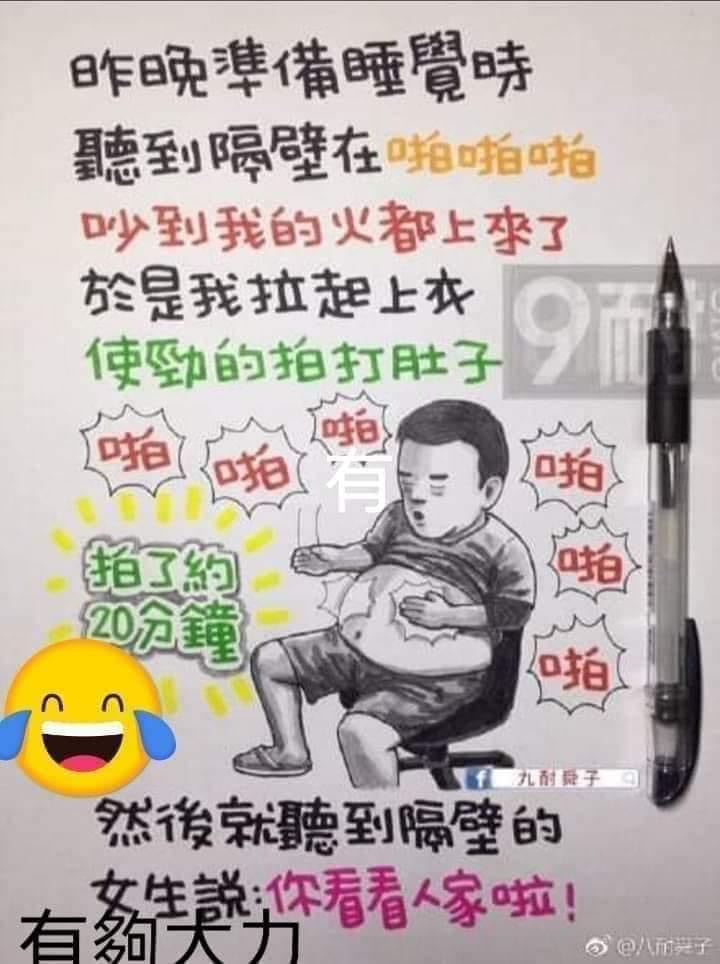 昨晚準備睡覺時
聽到隔壁在啪啪啪
吵到我的火都上來了
於是我拉起上衣
使勁的拍打肚子
9耐
啪
啪
啪
有
啪
啪
啪
拍了約
20分鐘
f 九耐舜子
然後就聽到隔壁的
女生說:你看看人家啦!
有夠大力
@八耐舜子